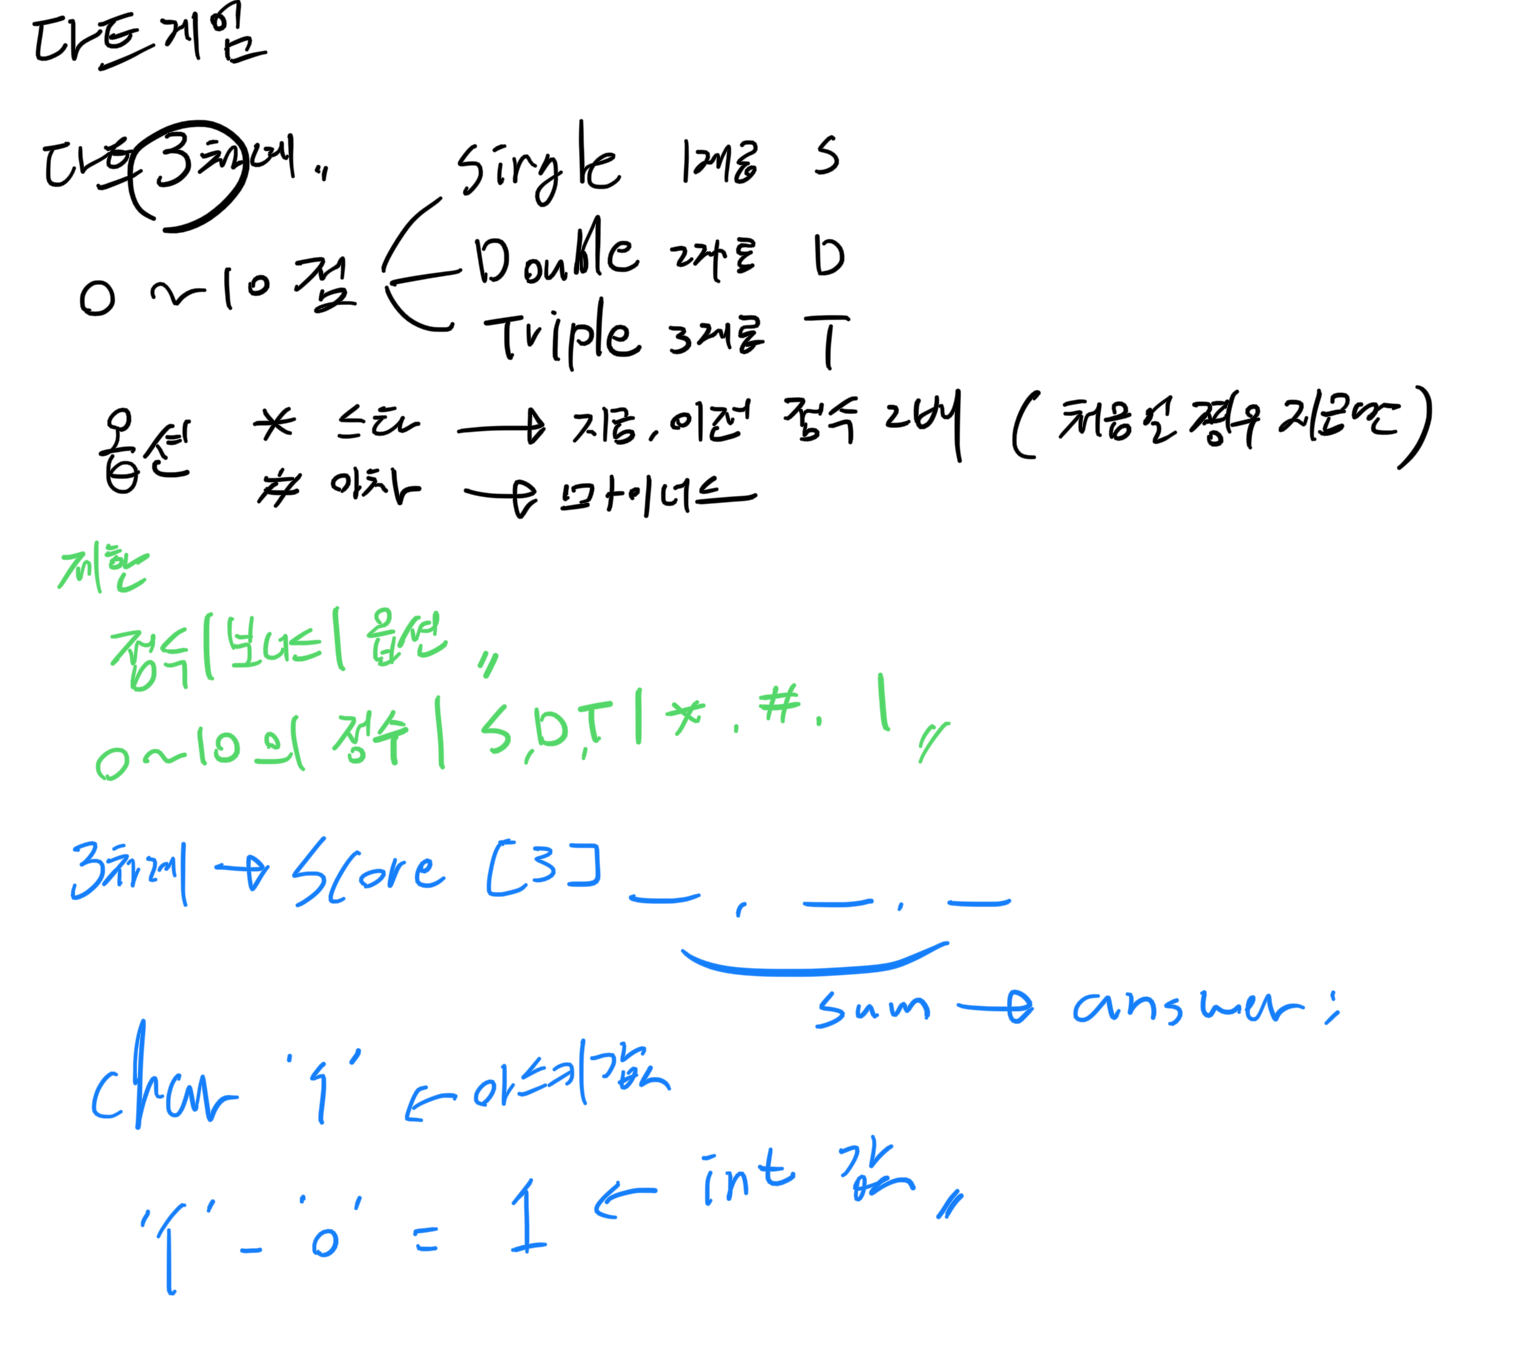 다트게임
다트 3차례 〃
Single 1제곱 S
0 ~ 10 점
Double 2제곱 D
Triple 3제곱 T
옵션 * 스타 → 지금, 이전 점수 2배 (처음일 경우 지금만)
# 아차 → 마이너스
제한
점수|보너스|옵션 〃
0~10의 정수 | S,D,T | *, #, | 〃
3차례 → Score [3] _, _, _
sum → answer;
char '1' ← 아스키값
'1' - '0' = 1 ← int 값 〃